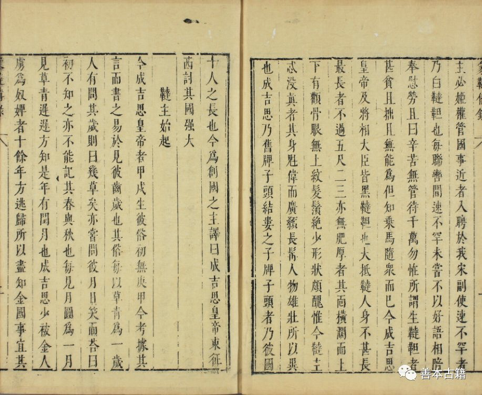 主必姬權管國事近者入聘於我宋副使速不罕者
乃白韃靼也每聯轡間速不罕未嘗不以好語相陪
奉慰勞且曰辛苦無管待千萬勿怪所謂生韃靼者
甚貧且拙且無能為但知乘馬隨衆而已今成吉思
皇帝及將相大臣皆黑韃靼也大抵韃人身不甚長
最長者不過五尺二三亦無肥厚者其面橫闊而上
下有顴骨眼無上紋髮鬚絕少形狀頗醜惟今韃主
忒沒真者其身魁偉而廣顙長髯人物雄壯所以異
也成吉思乃舊牌子頭結婁之子牌子頭者乃彼國
十人之長也今為創國之主譯曰成吉思皇帝東征
西討其國強大
韃主始起
今成吉思皇帝者甲戌生彼俗初無庚甲今考據其
言而書之易於見彼齒歲也其俗每以草青為一歲
人有問其歲則曰幾草矣亦嘗問彼月日笑而答曰
初不知之亦不能記其春與秋也每見月圓為一月
見草青遲遲方知是年有閏月也成吉思少被金人
虜為奴婢者十餘年方逃歸所以盡知金國事宜其
善本古籍